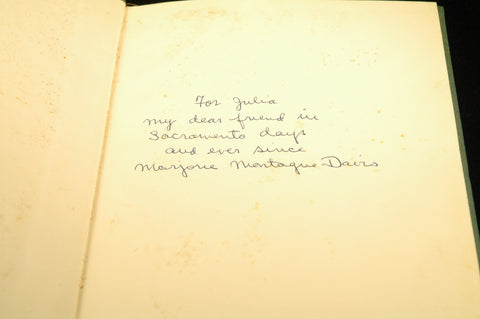 For Julia
my dear friend in
Sacramento days
and ever since
Marjorie Montague Davis